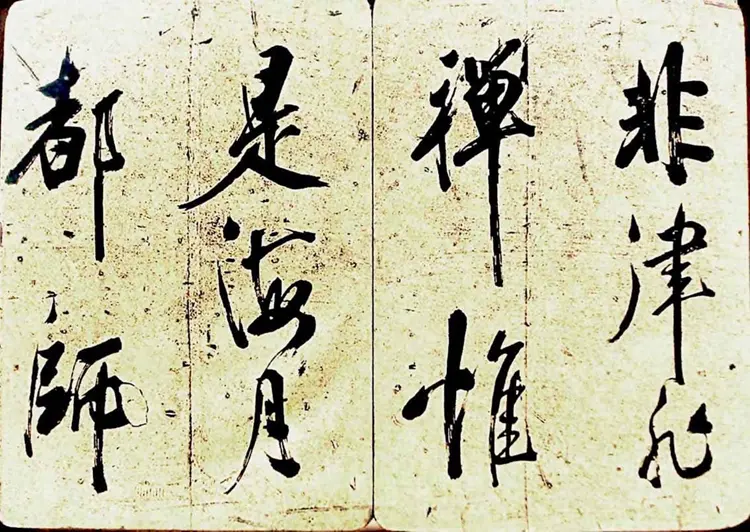 非津非
禅惟
是海月
都師